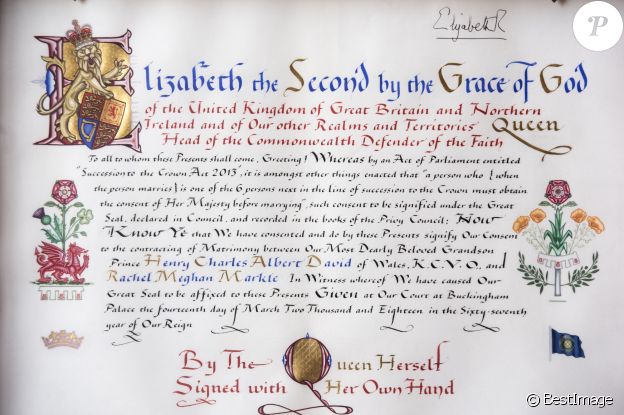 Elizabeth R
P
Elizabeth the Second by the Grace of God
of the United Kingdom of Great Britain and Northern
Ireland and of Our other Realms and Territories Queen
Head of the Commonwealth Defender of the Faith
To all to whom these Presents shall come, Greeting! Whereas by an Act of Parliament entitled
"Succession to the Crown Act 2013", it is amongst other things enacted that "a person who {when
the person marries} is one of the 6 persons next in the line of succession to the Crown must obtain
the consent of Her Majesty before marrying", such consent to be signified under the Great
Seal, declared in Council, and recorded in the books of the Privy Council; Now
Know Ye that We have consented and do by these Presents signify Our Consent
to the contracting of Matrimony between Our Most Dearly Beloved Grandson
Prince Henry Charles Albert David of Wales, K.C.V.O., and
Rachel Meghan Markle In Witness whereof We have caused Our
Great Seal to be affixed to these Presents Given at Our Court at Buckingham
Palace the fourteenth day of March Two Thousand and Eighteen in the Sixty-seventh
year of Our Reign
By The Queen Herself
Signed with Her Own Hand
© BestImage